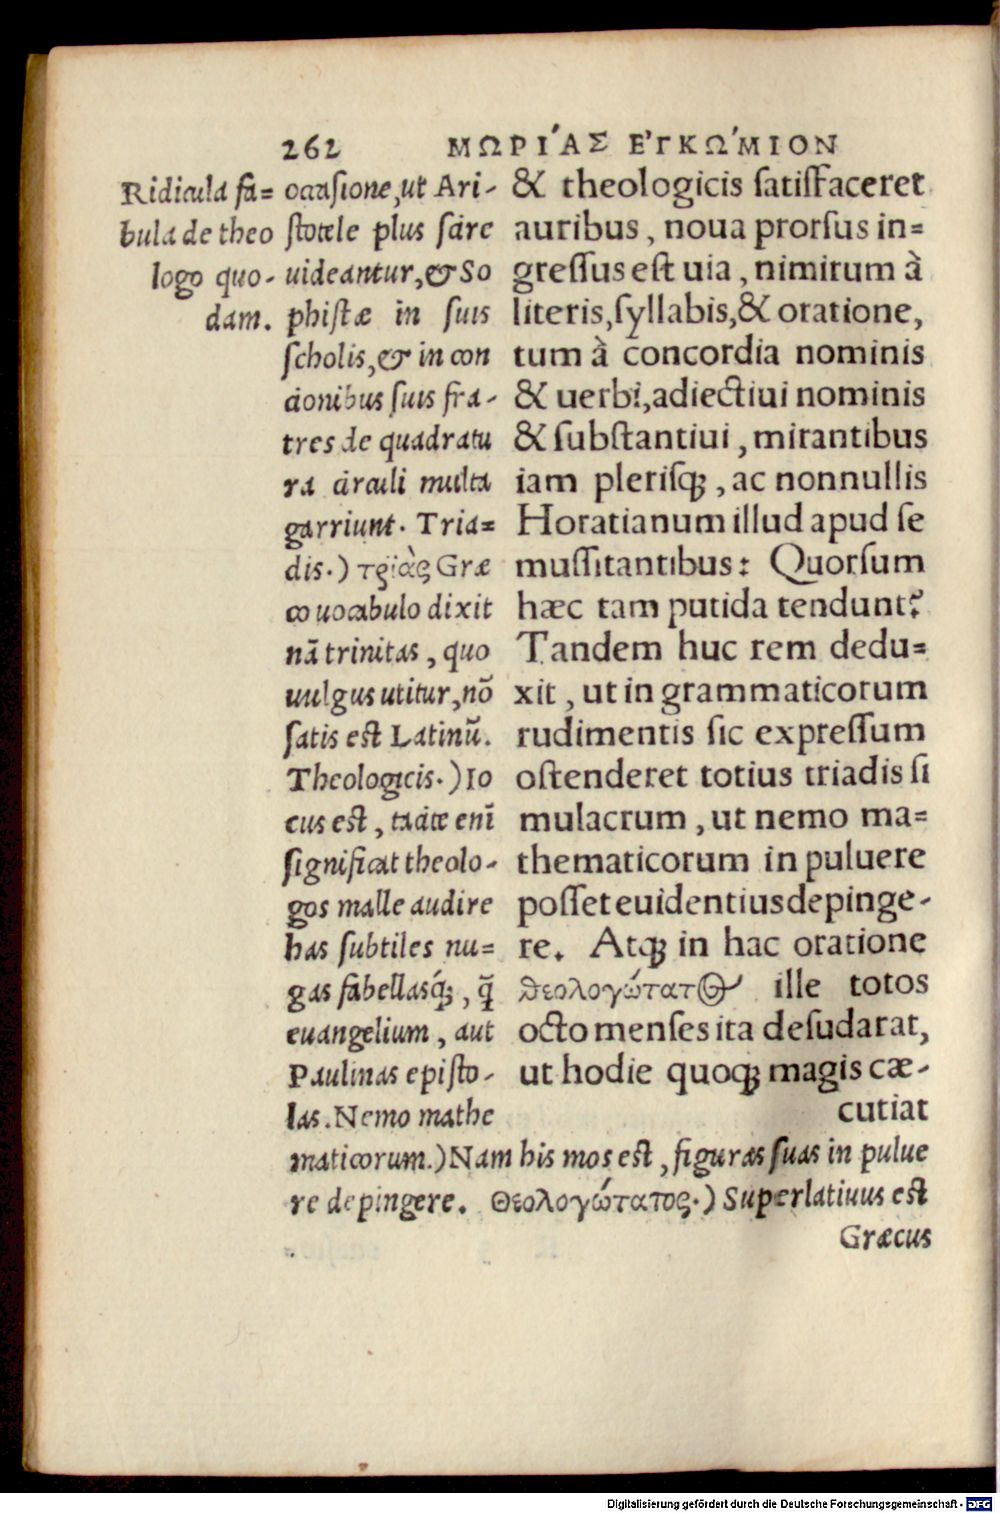 262 ΜΩΡΙ´ΑΣ ΕʹΓΚΩ´ΜΙΟΝ
Ridicula fa=
bula de theo
logo quo-
dam.
occasione, ut Ari-
stotele plus scire
uideantur, & So
phistæ in suis
scholis, & in con
cionibus suis fra-
tres de quadratu
ra circuli multa
garriunt. Tria=
dis.) τρὶὰς Græ
co uocabulo dixit
nā trinitas, quo
uulgus utitur, nō
satis est Latinū.
Theologicis.) Io
cus est, tacite enī
significat theolo-
gos malle audire
has subtiles nu=
gas fabellasq́;, q̄
euangelium, aut
Paulinas episto-
las. Nemo mathe
maticorum.) Nam his mos est, figuras suas in pulue
re depingere. Θεολογώτατος.) Superlatiuus est
Græcus
& theologicis satisfaceret
auribus, noua prorsus in=
gressus est uia, nimirum à
literis, syllabis, & oratione,
tum à concordia nominis
& uerbi, adiectiui nominis
& substantiui, mirantibus
iam plerisq;, ac nonnullis
Horatianum illud apud se
mussitantibus: Quorsum
hæc tam putida tendunt?
Tandem huc rem dedu=
xit, ut in grammaticorum
rudimentis sic expressum
ostenderet totius triadis si
mulacrum, ut nemo ma=
thematicorum in puluere
posset euidentius depinge-
re. Atq; in hac oratione
θεολογώτατος ille totos
octo menses ita desudarat,
ut hodie quoq; magis cæ-
cutiat
Digitalisierung gefördert durch die Deutsche Forschungsgemeinschaft - DFG